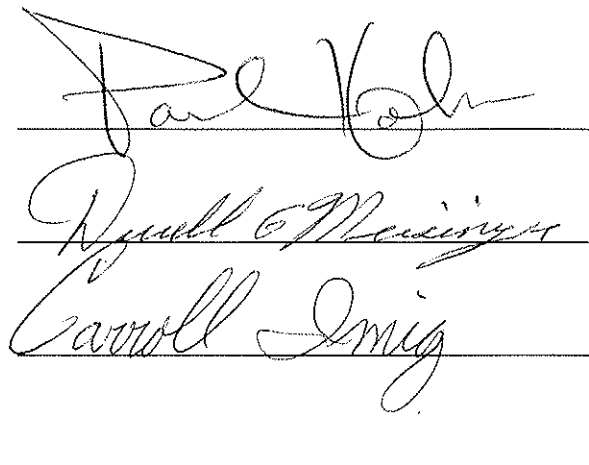 Paul Kohn
Durell E Meisinger
Carroll Imig